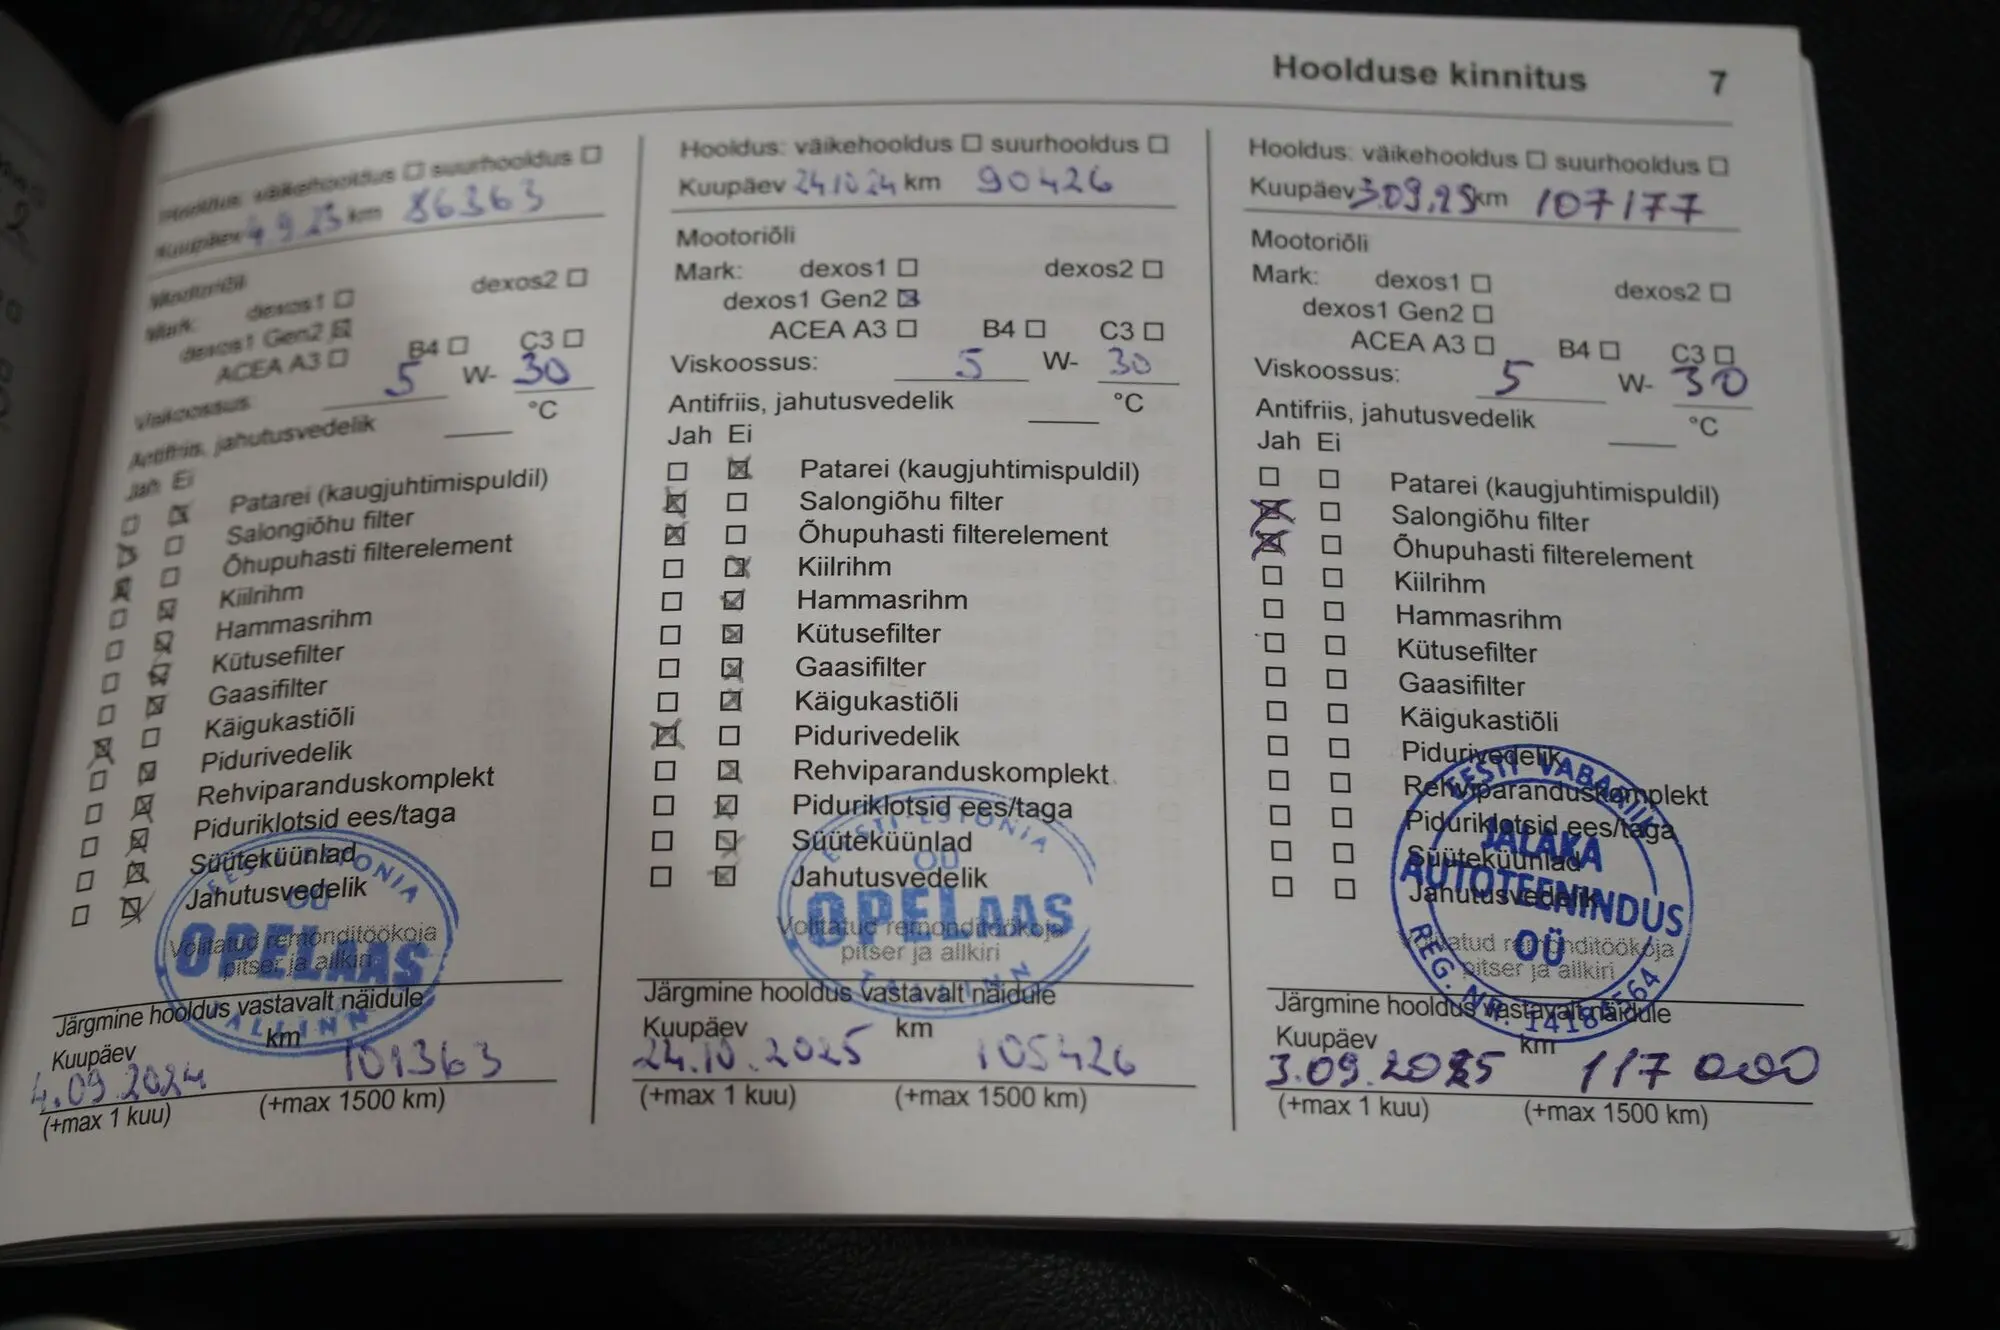 Hoolduse kinnitus 7
Hooldus: väikehooldus ☐ suurhooldus ☐
Kuupäev 4.9.23 km 86363
Mootoriõli
Mark: dexos1 ☐ dexos2 ☐
dexos1 Gen2 ☒
ACEA A3 ☐ B4 ☐ C3 ☐
Viskoossus: 5 W- 30
Antifriis, jahutusvedelik °C
Jah Ei
☐ ☒ Patarei (kaugjuhtimispuldil)
☒ ☐ Salongiõhu filter
☒ ☐ Õhupuhasti filterelement
☐ ☒ Kiilrihm
☐ ☒ Hammasrihm
☐ ☒ Kütusefilter
☐ ☒ Gaasifilter
☒ ☐ Käigukastiõli
☐ ☒ Pidurivedelik
☐ ☒ Rehviparanduskomplekt
☐ ☒ Piduriklotsid ees/taga
☐ ☒ Süüteküünlad
☐ ☒ Jahutusvedelik
EESTI ESTONIA
OÜ
OPELAAS
TALLINN
Volitatud remonditöökoja
pitser ja allkiri
Järgmine hooldus vastavalt näidule
Kuupäev km
4.09.2024 101363
(+max 1 kuu) (+max 1500 km)
Hooldus: väikehooldus ☐ suurhooldus ☐
Kuupäev 24.10.24 km 90426
Mootoriõli
Mark: dexos1 ☐ dexos2 ☐
dexos1 Gen2 ☒
ACEA A3 ☐ B4 ☐ C3 ☐
Viskoossus: 5 W- 30
Antifriis, jahutusvedelik °C
Jah Ei
☐ ☒ Patarei (kaugjuhtimispuldil)
☒ ☐ Salongiõhu filter
☒ ☐ Õhupuhasti filterelement
☐ ☒ Kiilrihm
☐ ☒ Hammasrihm
☐ ☒ Kütusefilter
☐ ☒ Gaasifilter
☐ ☒ Käigukastiõli
☒ ☐ Pidurivedelik
☐ ☒ Rehviparanduskomplekt
☐ ☒ Piduriklotsid ees/taga
☐ ☒ Süüteküünlad
☐ ☒ Jahutusvedelik
EESTI ESTONIA
OÜ
OPELAAS
TALLINN
Volitatud remonditöökoja
pitser ja allkiri
Järgmine hooldus vastavalt näidule
Kuupäev km
24.10.2025 105426
(+max 1 kuu) (+max 1500 km)
Hooldus: väikehooldus ☐ suurhooldus ☐
Kuupäev 3.09.25 km 107177
Mootoriõli
Mark: dexos1 ☐ dexos2 ☐
dexos1 Gen2 ☐
ACEA A3 ☐ B4 ☐ C3 ☐
Viskoossus: 5 W- 30
Antifriis, jahutusvedelik °C
Jah Ei
☐ ☐ Patarei (kaugjuhtimispuldil)
☒ ☐ Salongiõhu filter
☒ ☐ Õhupuhasti filterelement
☐ ☐ Kiilrihm
☐ ☐ Hammasrihm
☐ ☐ Kütusefilter
☐ ☐ Gaasifilter
☐ ☐ Käigukastiõli
☐ ☐ Pidurivedelik
☐ ☐ Rehviparanduskomplekt
☐ ☐ Piduriklotsid ees/taga
☐ ☐ Süüteküünlad
☐ ☐ Jahutusvedelik
EESTI VABARIIK
JALAKA
AUTOTEENINDUS
OÜ
REG. NR.
Volitatud remonditöökoja
pitser ja allkiri
Järgmine hooldus vastavalt näidule
Kuupäev km
3.09.2025 117 000
(+max 1 kuu) (+max 1500 km)